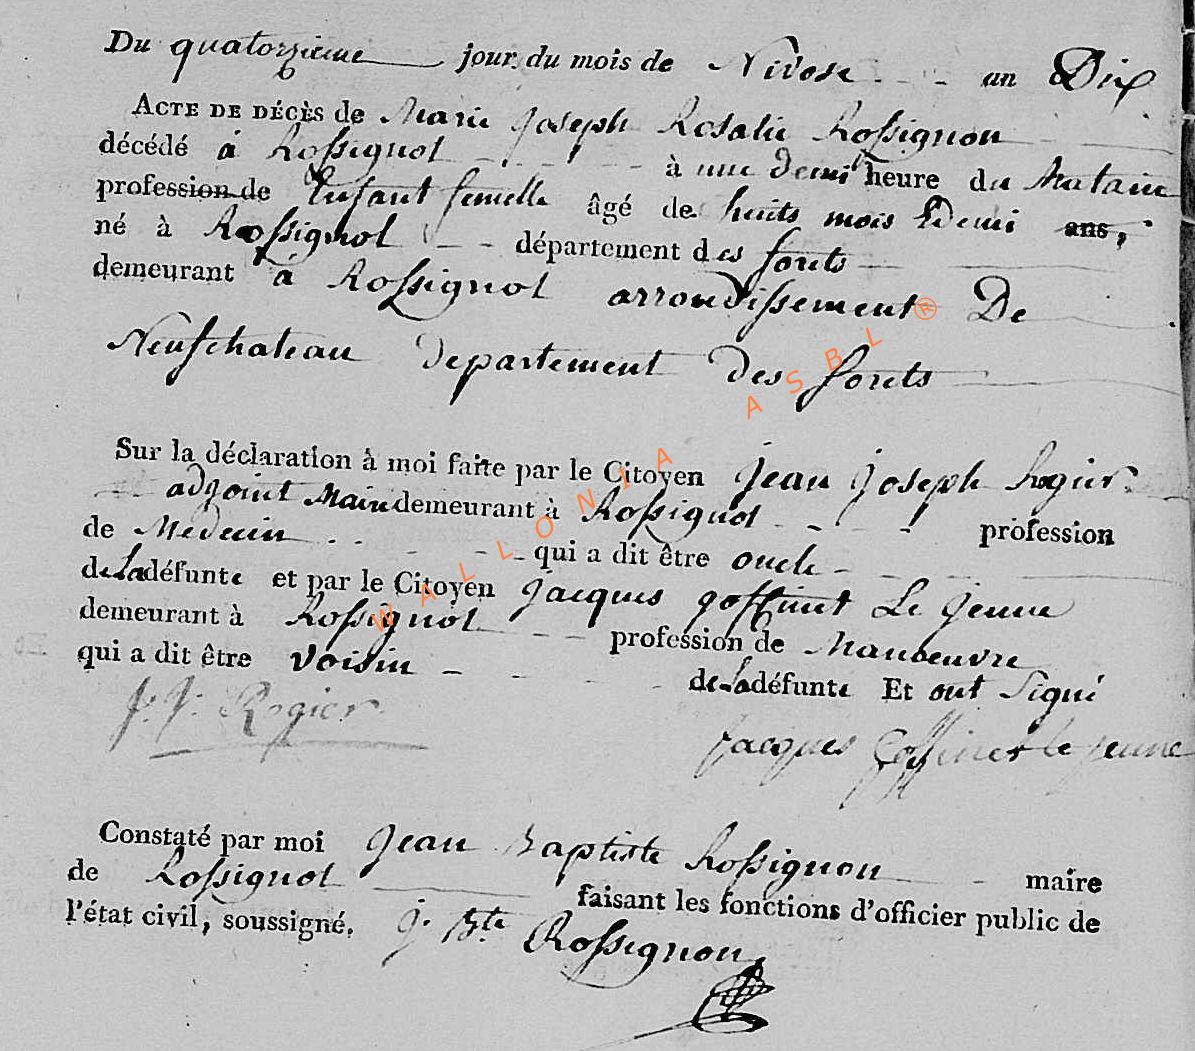 Du quatorzieme jour du mois de Nivose an Dix
ACTE DE DÉCÈS de Marie Joseph Rosalie Rossignon
décédé à Rossignol à une demi heure du Matain
profession de Enfant femelle âgé de huits mois & Demi ans,
né à Rossignol département des forets
demeurant à Rossignol arrondissement De
Neufchateau departement des forets
Sur la déclaration à moi faite par le Citoyen Jean Joseph Rogier
adjoint Maire demeurant à Rossignol profession
de Médecin qui a dit être oncle
de La défunte et par le Citoyen Jacques goffinet Le Jeune
demeurant à Rossignol profession de Manoeuvre
qui a dit être voisin de La défunte Et ont Signé
J. J. Rogier
Jacques Goffinet le jeune
Constaté par moi Jean Baptiste Rossignon maire
de Rossignol faisant les fonctions d'officier public de
l'état civil, soussigné. J. Bte Rossignon
WALLONIA ASBL ®